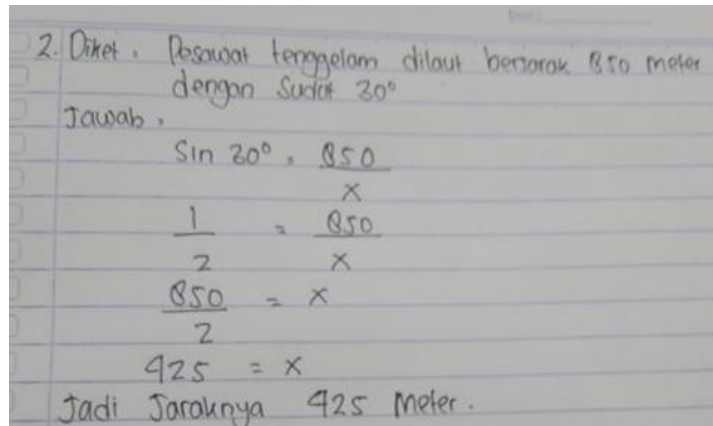 2. Diket. Pesawat tenggelam dilaut berjarak 850 meter
dengan Sudut 30°
Jawab.
Sin 30° = 850
x
1 = 850
2 x
850 = x
2
425 = x
Jadi Jaraknya 425 Meter.